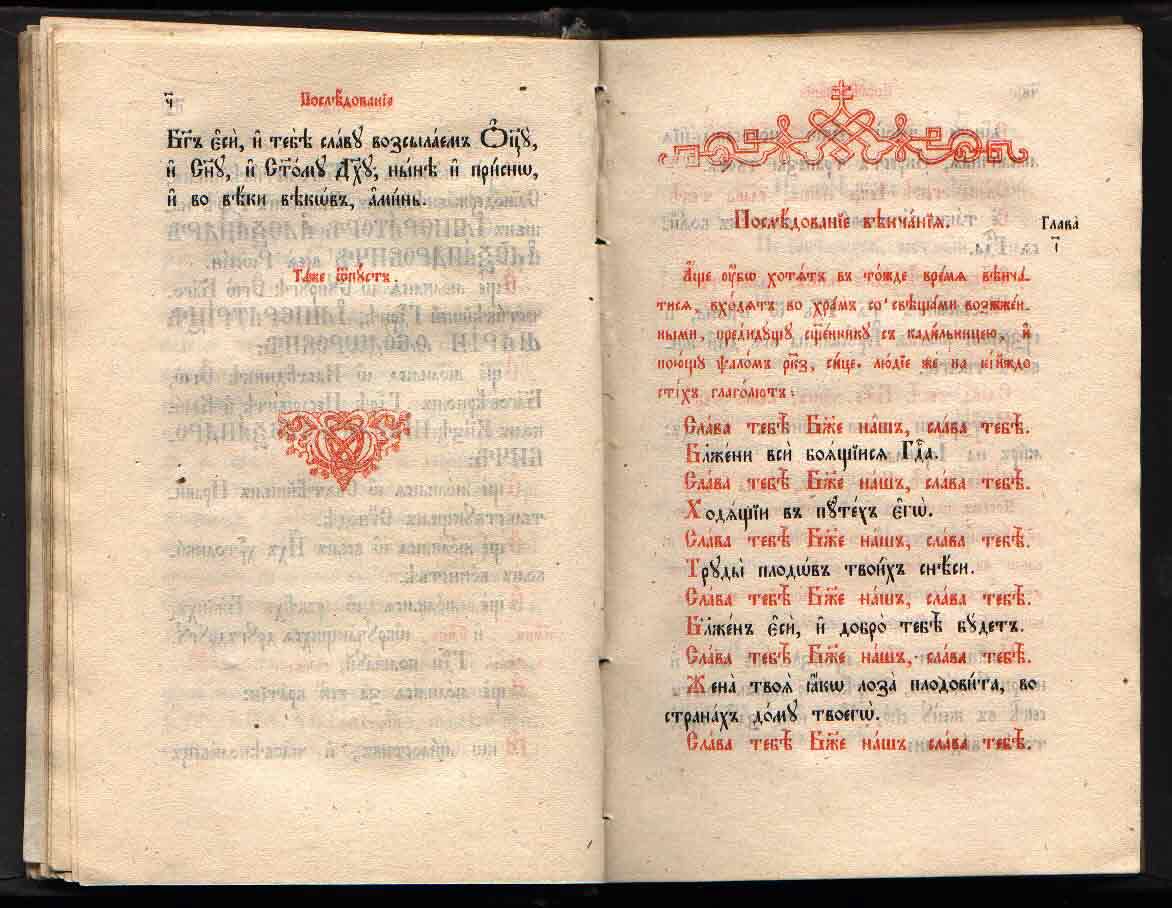 ч҃
Послѣ́дованїе
Бг҃ъ є҆сѝ, и҆ тебѣ̀ сла́вꙋ возсыла́емъ Ѻ҆ц҃ꙋ̀,
и҆ Сн҃ꙋ, и҆ Ст҃о́мꙋ Дх҃ꙋ, ны́нѣ и҆ при́снѡ,
и҆ во вѣ́ки вѣкѡ́въ, а҆ми́нь.
Та́же ѿпꙋ́стъ.
Послѣ́дованїе вѣнча́нїѧ.
Глава̀
і҃
А҆́ще ᲂу҆́бѡ хотѧ́тъ въ то́жде вре́мѧ вѣнча́-
тисѧ, вхо́дѧтъ во хра́мъ со свѣща́ми возжже́н-
ными, предидꙋ́щꙋ сщ҃е́нникꙋ съ кади́льницею, и҆
пою́щꙋ ѱало́мъ рк҃з, си́це. лю́дїе же на кі́йждо
сті́хъ глаго́лютъ:
Сла́ва тебѣ̀ Бж҃е на́шъ, сла́ва тебѣ̀.
Бл҃же́ни всѝ боѧ́щїисѧ Гдⷭ҇а.
Сла́ва тебѣ̀ Бж҃е на́шъ, сла́ва тебѣ̀.
Ходѧ́щїи въ пꙋте́хъ є҆гѡ̀.
Сла́ва тебѣ̀ Бж҃е на́шъ, сла́ва тебѣ̀.
Трꙋды̀ плодѡ́въ твои́хъ снѣ́си.
Сла́ва тебѣ̀ Бж҃е на́шъ, сла́ва тебѣ̀.
Бл҃же́нъ є҆сѝ, и҆ добро̀ тебѣ̀ бꙋ́детъ.
Сла́ва тебѣ̀ Бж҃е на́шъ, сла́ва тебѣ̀.
Жена̀ твоѧ̀ ꙗ҆́кѡ лоза̀ плодови́та, во
страна́хъ до́мꙋ твоегѡ̀.
Сла́ва тебѣ̀ Бж҃е на́шъ, сла́ва тебѣ̀.